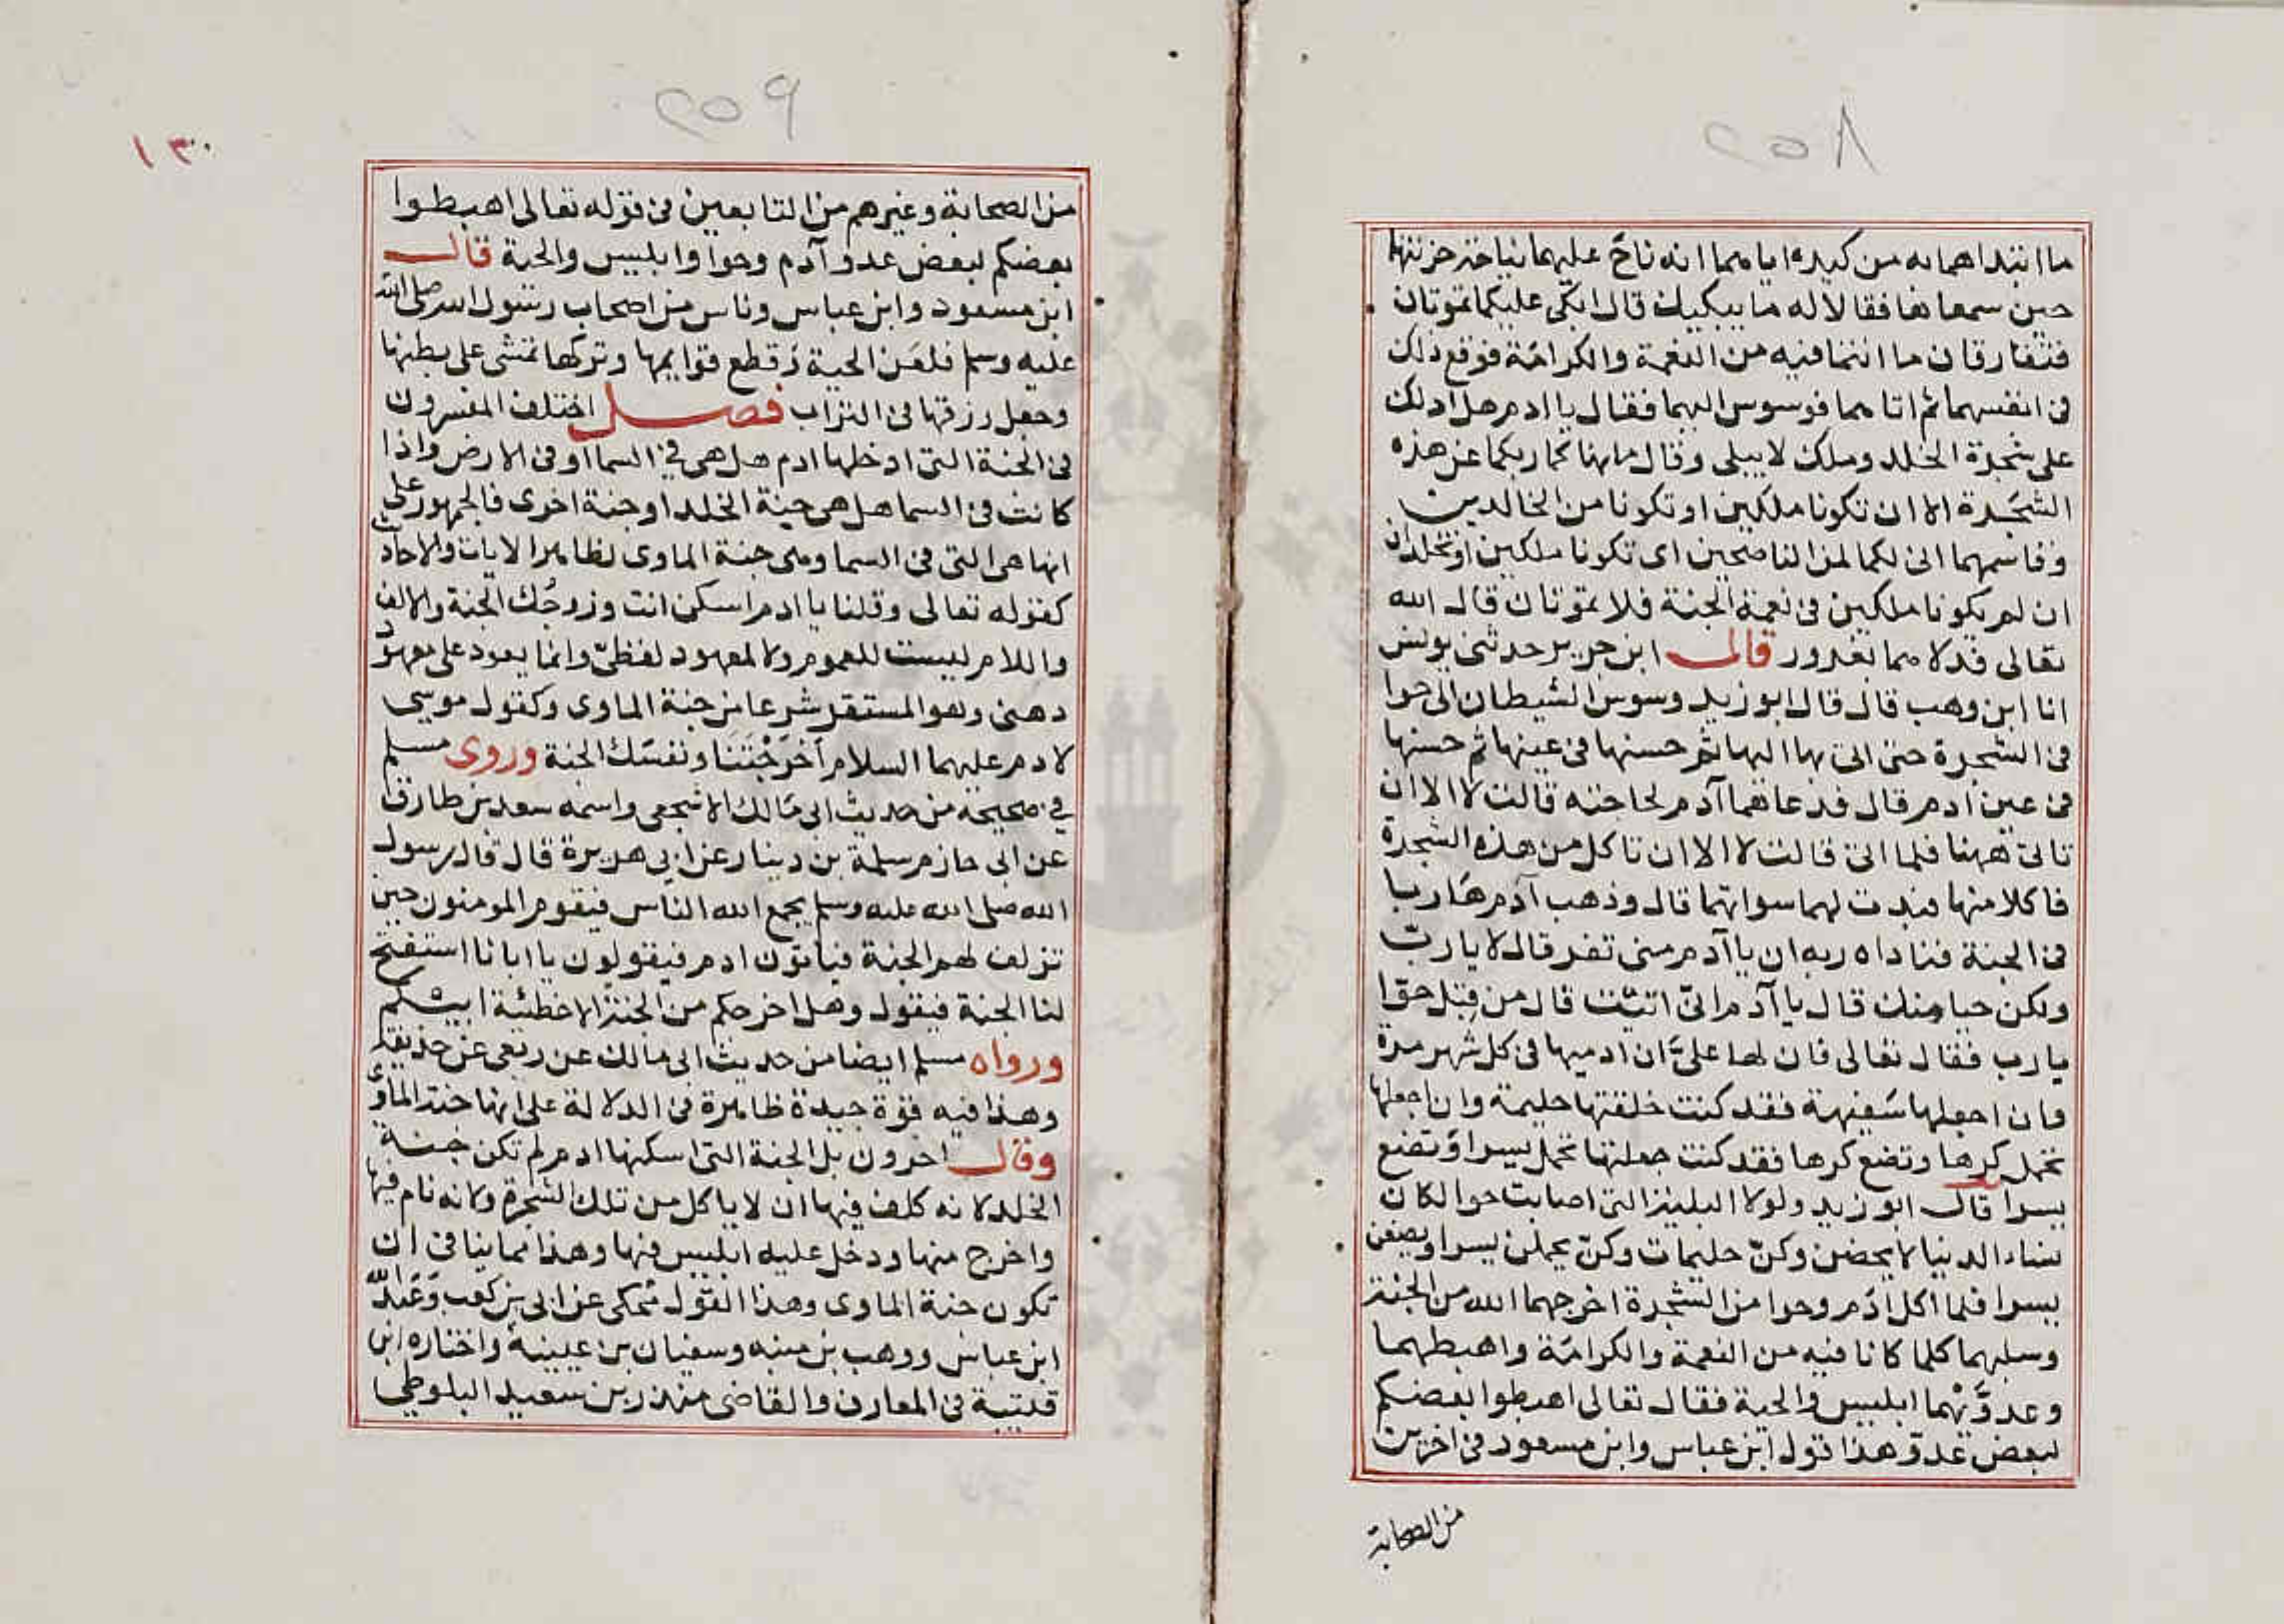 ٢٥٨
ما ابتداهما به من كيده اياهما انه ناح عليهما نياحة حزنتهما
حين سمعاها فقالا له ما يبكيك قال ابكى عليكما تموتان
فتفارقان ما انتما فيه من النعمة والكرامة فوقع ذلك
فى انفسهما ثم اتاهما فوسوس اليهما فقال يا ادم هل ادلك
على شجرة الخلد وملك لا يبلى وقال ما نهاكما ربكما عن هذه
الشجرة الا ان تكونا ملكين او تكونا من الخالدين
وقاسمهما انى لكما لمن الناصحين اى تكونا ملكين او تخلدان
ان لم تكونا ملكين فى نعمة الجنة فلا تموتان قال الله
تعالى فدلاهما بغرور قال ابن جرير حدثنى يونس
انا ابن وهب قال قال ابو زيد وسوس الشيطان الى حوا
فى الشجرة حتى اتى بها اليها ثم حسنها فى عينها ثم حسنها
فى عين ادم قال فدعاهما آدم لحاجته قالت لا الا ان
تاتى ههنا فلما اتى قالت لا الا ان تاكل من هذه الشجرة
فاكلا منها فبدت لهما سواتهما قال وذهب آدم هاربا
فى الجنة فناداه ربه ان يا آدم منى تفر قال لا يا رب
ولكن حيا منك قال يا آدم انىّ اتيت قال من قبل حوا
يا رب فقال تعالى فان لها علىّ ان ادميها فى كل شهر مرة
وان اجعلها سفيهة فقد كنت خلقتها حليمة وان اجعلها
تحمل كرها وتضع كرها فقد كنت جعلتها تحمل يسرا وتضع
يسرا قال ابو زيد ولولا البلية التى اصابت حوا لكان
نساء الدنيا لا يحضن وكنّ حليمات وكنّ يحملن يسرا ويضعن
يسرا فلما اكل ادم وحوا من الشجرة اخرجهما الله من الجنة
وسلبهما كلما كانا فيه من النعمة والكرامة واهبطهما
وعدوّهما ابليس والحية فقال تعالى اهبطوا بعضكم
لبعض عدو هذا قول ابن عباس وابن مسعود فى اخرين
من الصحابة
٢٥٩
١٣٠
من الصحابة وغيرهم من التابعين فى قوله تعالى اهبطوا
بعضكم لبعض عدو آدم وحوا وابليس والحية قال
ابن مسعود وابن عباس وناس من اصحاب رسول الله صلى الله
عليه وسلم فلعن الحية وقطع قوايمها وتركها تمشى على بطنها
وجعل رزقها فى التراب فصل اختلف المفسرون
فى الجنة التى ادخلها ادم هل هى فى السما او فى الارض واذا
كانت فى السما هل هى جنة الخلد او جنة اخرى فالجمهور على
انها هى التى فى السما وهى جنة الماوى لظاهر الايات والاحاديث
كقوله تعالى وقلنا يا ادم اسكن انت وزوجك الجنة والالف
واللام ليست للعموم ولا لمعهود لفظىّ وانما يعود على معهود
ذهنى وهو المستقر شرعا من جنة الماوى وكقول موسى
لادم عليهما السلام اخرجتنا ونفسك الجنة وروى مسلم
فى صحيحه من حديث ابى مالك الاشجعى واسمه سعد بن طارق
عن ابى حازم سلمة بن دينار عن ابي هريرة قال قال رسول
الله صلى الله عليه وسلم يجمع الله الناس فيقوم المومنون حين
تزلف لهم الجنة فياتون ادم فيقولون يا ابانا استفتح
لنا الجنة فيقول وهل اخرجكم من الجنة الا خطئية ابيكم
ورواه مسلم ايضا من حديث ابى مالك عن ربعى عن حذيفة
وهذا فيه قوة جيدة ظاهرة فى الدلالة على انها جنة الماوى
وقال اخرون بل الجنة التى اسكنها ادم لم تكن جنة
الخلد لانه كلف فيها ان لا ياكل من تلك الشجرة ولانه نام فيها
واخرج منها ودخل عليه ابليس فيها وهذا مما ينافى ان
تكون جنة الماوى وهذا القول محكى عن ابى بن كعب وعبد الله
ابن عباس ووهب بن منبه وسفيان بن عيينة واختاره ابن
قتيبة فى المعارف والقاضى منذر بن سعيد البلوطي